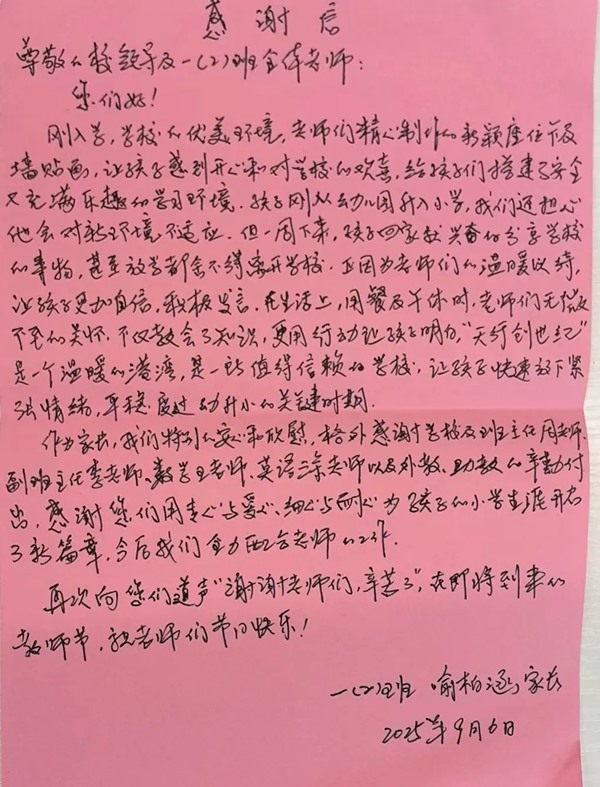 感谢信
尊敬的校领导及一(2)班全体老师:
您们好!
刚入学,学校的优美环境,老师们精心制作的新颖座位夹及
墙贴画,让孩子感到开心和对学校的欢喜,给孩子们搭建了安全
又充满乐趣的学习环境.孩子刚从幼儿园升入小学,我们还担心
他会对新环境不适应.但一周下来,孩子回家就兴奋的分享学校
的事物,甚至放学都舍不得离开学校.正因为老师们的温暖以待,
让孩子更加自信,积极发言.在生活上,用餐及午休时,老师们无微
不至的关怀.不仅教会了知识,更用行动让孩子明白,“天行创世纪”
是一个温暖的港湾,是一所值得信赖的学校,让孩子快速放下紧
张情绪,平稳度过幼升小的关键时期.
作为家长,我们特别的安心和欣慰,格外感谢学校及班主任周老师.
副班主任李老师、数学王老师、英语涂老师以及外教、助教的辛勤付
出,感谢您们用专心与爱心、细心与耐心为孩子的小学生涯开启
了新篇章,今后我们全力配合老师的工作.
再次向您们道声“谢谢老师们,辛苦了”,在即将到来的
教师节,祝老师们节日快乐!
一(2)班 喻柏涵家长
2025年9月6日